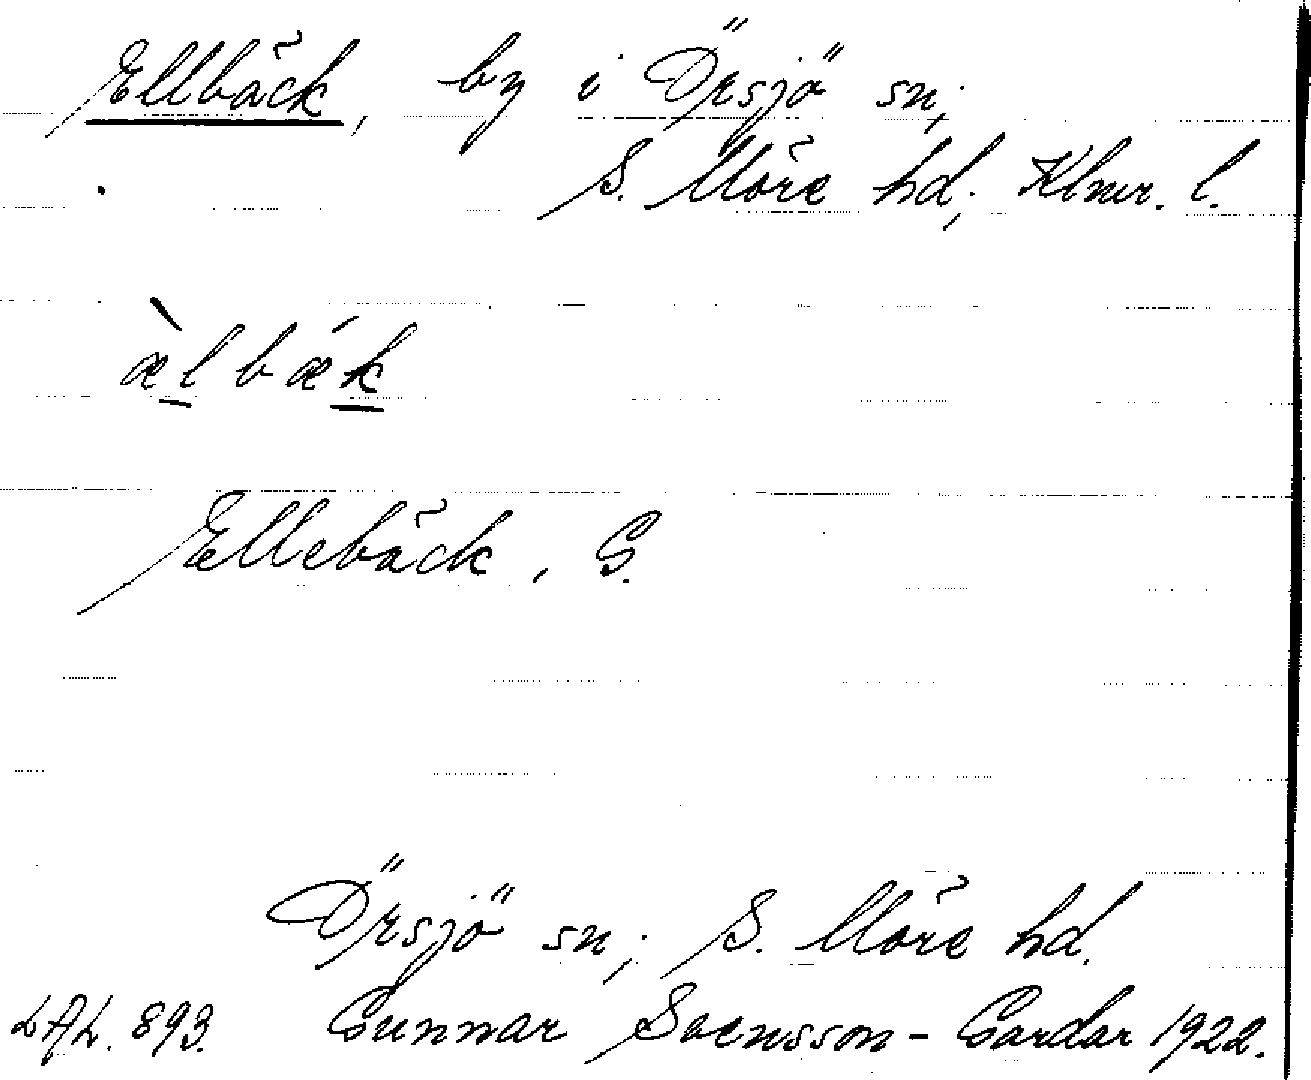 Ellbäck, by i Örsjö sn,
S. Möre hd, Klmr. l.
æ̀lbǽk
Ellebäck, G.
Örsjö sn; S. Möre hd.
LAL. 893. Gunnar Svensson-Gardar 1922.